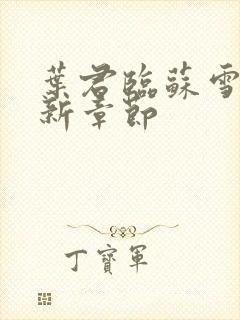 葉君臨蘇雪
新章節
丁寶軍